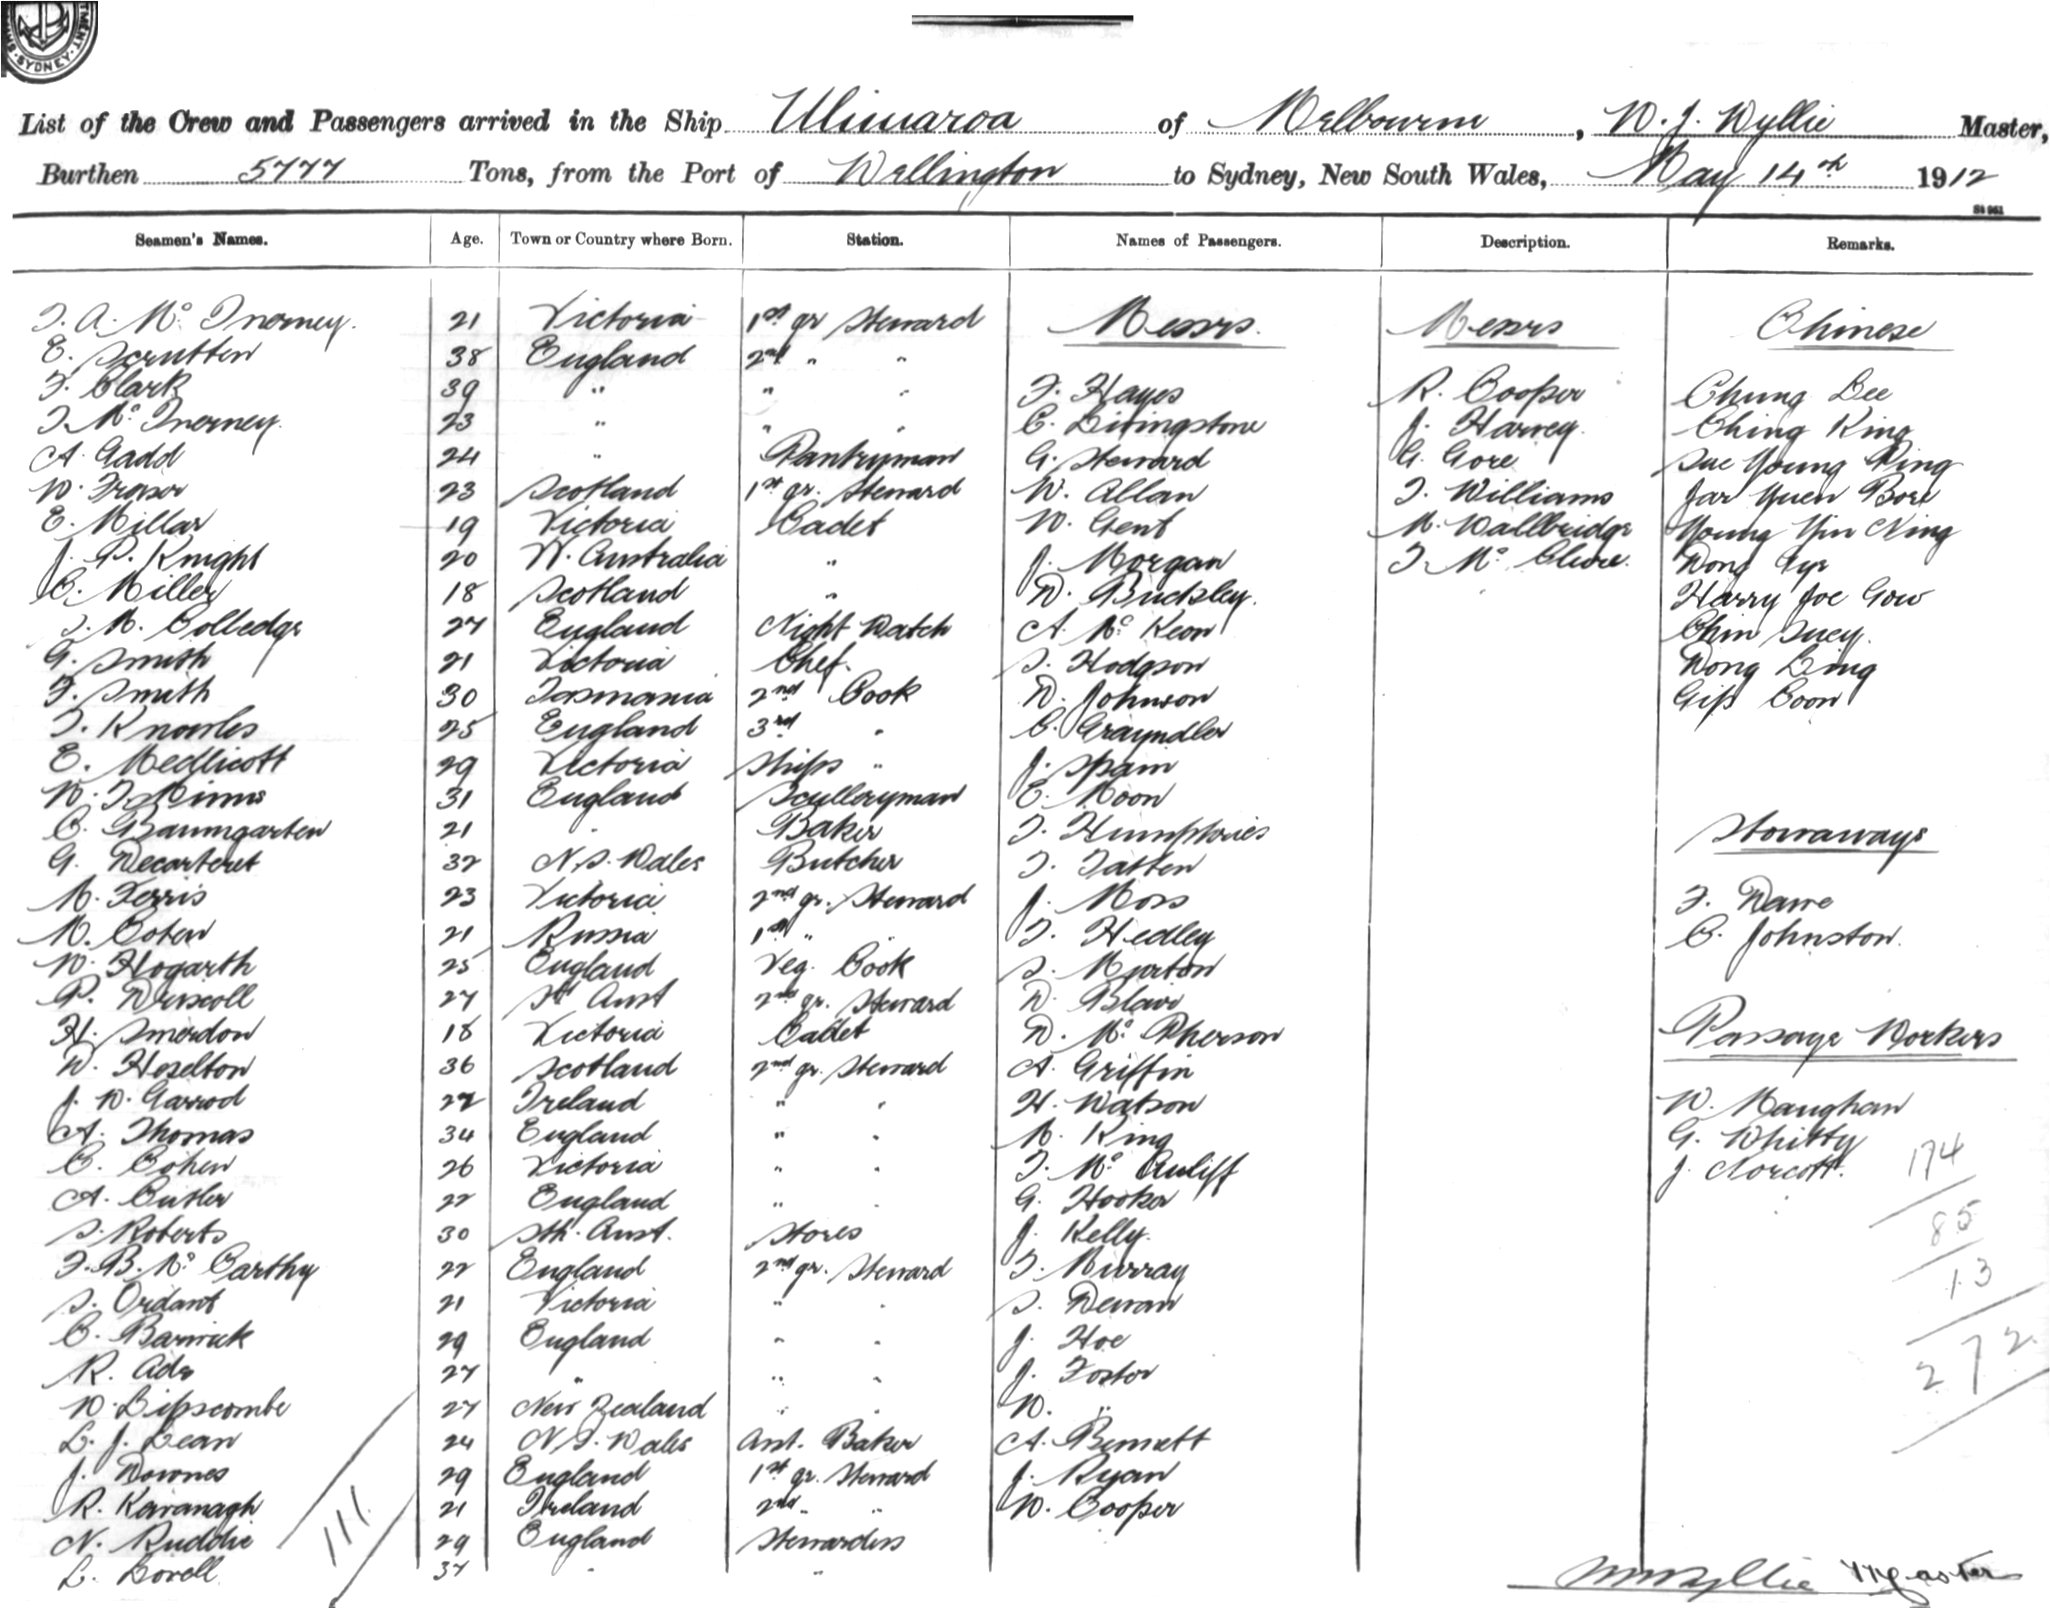 SYDNEY
List of the Crew and Passengers arrived in the Ship Ulimaroa of Melbourne, W. J. Wyllie Master,
Burthen 5777 Tons, from the Port of Wellington to Sydney, New South Wales, May 14th 1912
St 961
Seamen's Names. Age. Town or Country where Born. Station. Names of Passengers. Description. Remarks.
T. A. Mc Inerney. 21 Victoria 1st gr Steward Messrs. Messrs Chinese
E. Scrutten 38 England 2nd " "
F. Clark 39 " " " F. Hayes R. Cooper Chung Lee
T. Mc Inerney. 23 " " " C. Livingstone J. Harvey. Ching King
A. Gadd 24 " Pantryman G. Steward G. Gore Sue Young Ping
W. Fraser 23 Scotland 1st gr. Steward W. Allan T. Williams Jar Yuen Bore
E. Millar 19 Victoria Cadet W. Gent M. Wallbridge Young Yin Ning
J. P. Knight 20 W. Australia " J. Morgan T. Mc Clure. Dong
C. Miller 18 Scotland " D. Bucksley. Harry Joe Gow
T. M. Colledge 27 England Night Watch A. Mc Keon Chin Suey.
G. Smith 21 Victoria Chef. S. Hodgson Wong Ling
F. Smith 30 Tasmania 2nd Cook D. Johnson Gip Coon
T. Knowles 25 England 3rd " C. Grayndler
E. Medlicott 29 Victoria Ships " J. Spain
W. T. Minns 31 England Sculleryman E. Moon
C. Baumgarten 21 " Baker T. Humphries Stowaways
G. Decarteret 32 N. S. Wales Butcher T. Tatten
M. Ferris 23 Victoria 2nd gr. Steward J. Moss F. Dawe
M. Coten 21 Russia 1st " " T. Hedley C. Johnston.
W. Hogarth 25 England Veg. Cook S. Murton
P. Driscoll 27 Sth Aust 2nd gr. Steward D. Blair
H. Smerdon 18 Victoria Cadet D. Mc Pherson Passage Workers
D. Heselton 36 Scotland 2nd gr. Steward A. Griffin
J. W. Garrod 22 Ireland " " H. Watson W. Maughan
A. Thomas 34 England " " M. King G. Whitty
C. Cohen 26 Victoria " " T. Mc Auliff J. Norcott. 174
A. Cutler 22 England " " G. Hooker
S. Roberts 30 Sth. Aust. Stores J. Kelly. 85
F. B. Mc Carthy 22 England 2nd gr. Steward T. Murray 13
S. Ordant 21 Victoria " " S. Dewan
C. Barwick 29 England " " J. Hoe 272
R. Ade 27 " " " J. Foster
W. Lipscombe 27 New Zealand " " W. "
L. J. Lean 24 N. S. Wales Asst. Baker A. Bennett
J. Downes 29 England 1st gr. Steward J. Ryan
R. Kavanagh 21 Ireland 2nd " " W. Cooper
N. Ruddie 29 England Stewardess
111
L. Lovell 37 " "
W J Wyllie Master